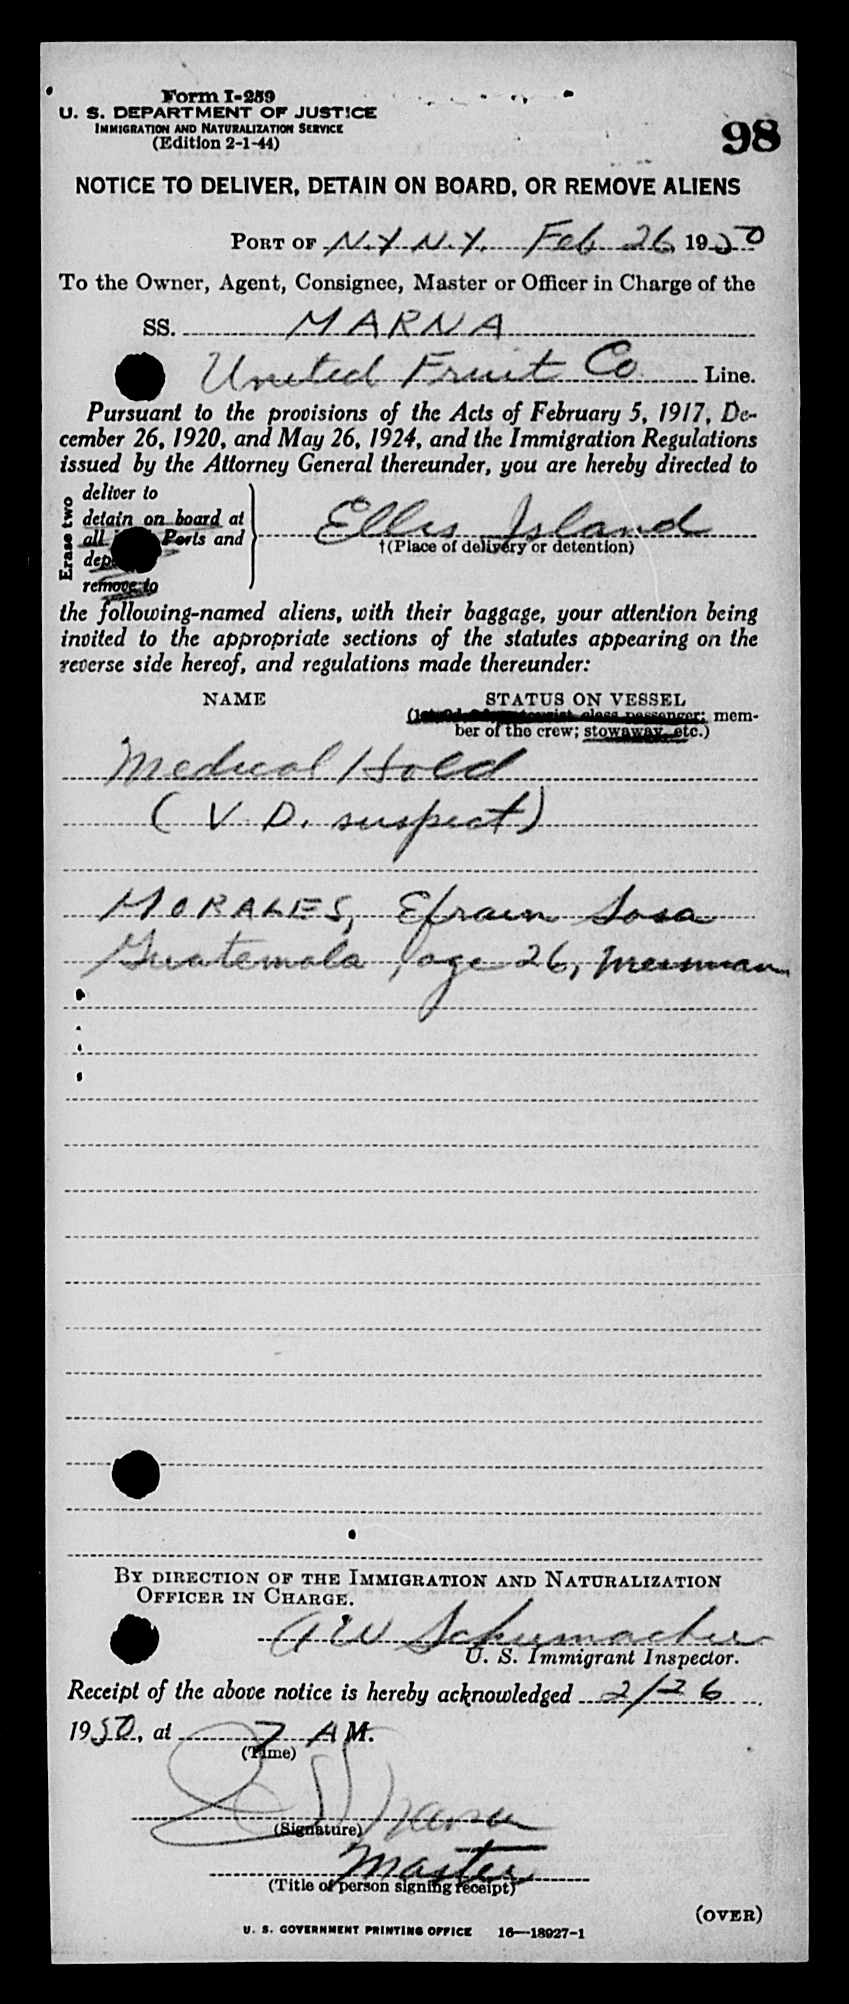 Form I-259
U. S. DEPARTMENT OF JUSTICE
IMMIGRATION AND NATURALIZATION SERVICE
(Edition 2-1-44)
98
NOTICE TO DELIVER, DETAIN ON BOARD, OR REMOVE ALIENS
PORT OF N.Y. N.Y. Feb 26, 1950
To the Owner, Agent, Consignee, Master or Officer in Charge of the
SS. MARNA
United Fruit Co Line.
Pursuant to the provisions of the Acts of February 5, 1917, De-
cember 26, 1920, and May 26, 1924, and the Immigration Regulations
issued by the Attorney General thereunder, you are hereby directed to
Erase two
deliver to
detain on board at
all Ports and
remove to
Ellis Island
†(Place of delivery or detention)
the following-named aliens, with their baggage, your attention being
invited to the appropriate sections of the statutes appearing on the
reverse side hereof, and regulations made thereunder:
NAME STATUS ON VESSEL
tourist class passenger; mem-
ber of the crew; stowaway, etc.)
Medical Hold
(V.D. suspect)
MORALES, Efrain Sosa
Guatemala, age 26, messman
BY DIRECTION OF THE IMMIGRATION AND NATURALIZATION
OFFICER IN CHARGE.
A W Schumacher
U. S. Immigrant Inspector.
Receipt of the above notice is hereby acknowledged 2/26
1950, at 7 A M.
(Time)
(Signature)
Master
(Title of person signing receipt)
(OVER)
U. S. GOVERNMENT PRINTING OFFICE 16—18927-1